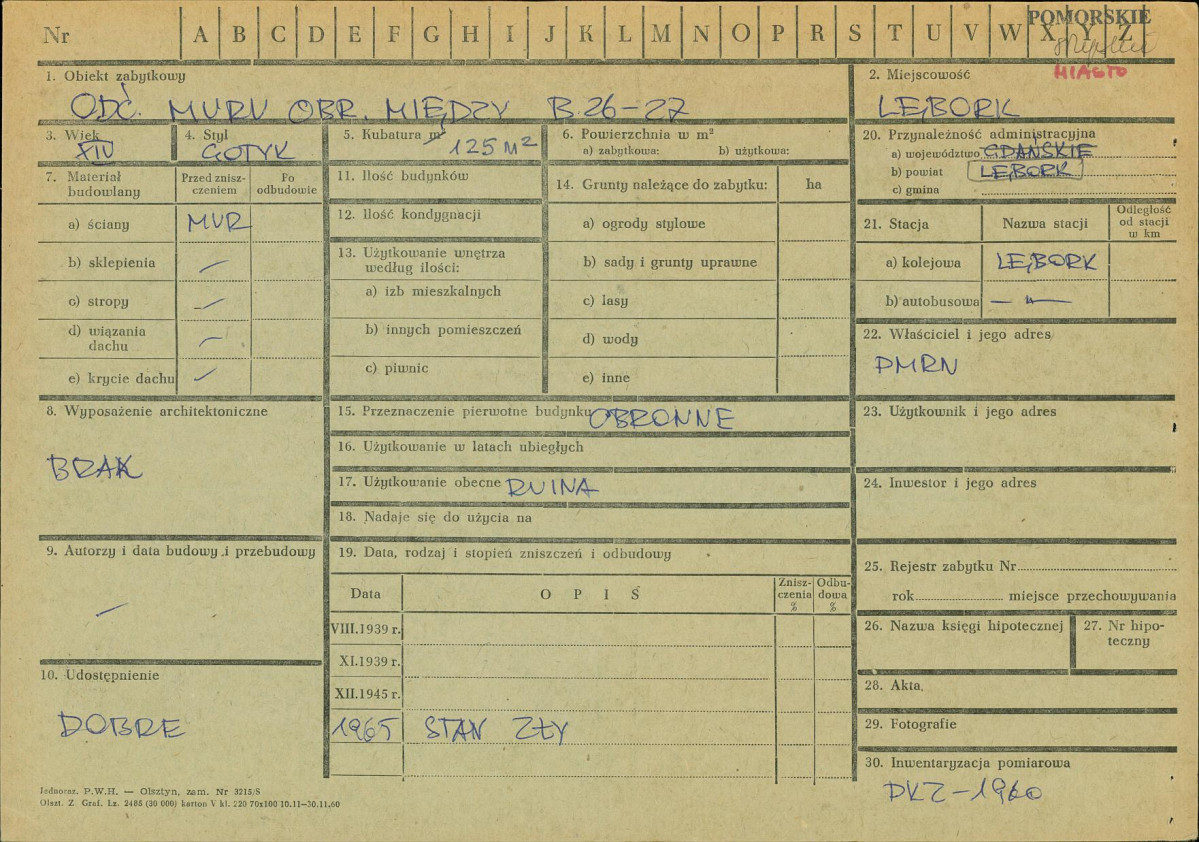 Nr A B C D E F G H I J K L M N O P R S T U V W X Y Z
POMORSKIE
MIASTO
1. Obiekt zabytkowy
ODC. MURU OBR. MIĘDZY B.26-27
2. Miejscowość
LĘBORK
3. Wiek
XIV
4. Styl
GOTYK
5. Kubatura m³
125 M²
6. Powierzchnia w m²
a) zabytkowa: b) użytkowa:
20. Przynależność administracyjna
a) województwo GDAŃSKIE
b) powiat LĘBORK
c) gmina
7. Materiał budowlany
Przed zniszczeniem
Po odbudowie
a) ściany MUR
b) sklepienia —
c) stropy —
d) wiązania dachu —
e) krycie dachu —
11. Ilość budynków
12. Ilość kondygnacji
13. Użytkowanie wnętrza
według ilości:
a) izb mieszkalnych
b) innych pomieszczeń
c) piwnic
14. Grunty należące do zabytku: ha
a) ogrody stylowe
b) sady i grunty uprawne
c) lasy
d) wody
e) inne
21. Stacja
Nazwa stacji
Odległość
od stacji
w km
a) kolejowa LĘBORK
b) autobusowa — " —
22. Właściciel i jego adres
PMRN
8. Wyposażenie architektoniczne
BRAK
15. Przeznaczenie pierwotne budynku OBRONNE
16. Użytkowanie w latach ubiegłych
17. Użytkowanie obecne RUINA
18. Nadaje się do użycia na
23. Użytkownik i jego adres
24. Inwestor i jego adres
9. Autorzy i data budowy i przebudowy
—
19. Data, rodzaj i stopień zniszczeń i odbudowy
Data
O P I S
Zniszczenia %
Odbudowa %
VIII.1939 r.
XI.1939 r.
XII.1945 r.
1965 STAN ZŁY
25. Rejestr zabytku Nr
rok miejsce przechowywania
26. Nazwa księgi hipotecznej
27. Nr hipoteczny
28. Akta
29. Fotografie
30. Inwentaryzacja pomiarowa
PKZ - 1960
10. Udostępnienie
DOBRE
Jednoraz. P.W.H. — Olsztyn, zam. Nr 3215/S
Olszt. Z. Graf. Lz. 2485 (30 000) karton V kl. 220 70x100 10.11—30.11.60